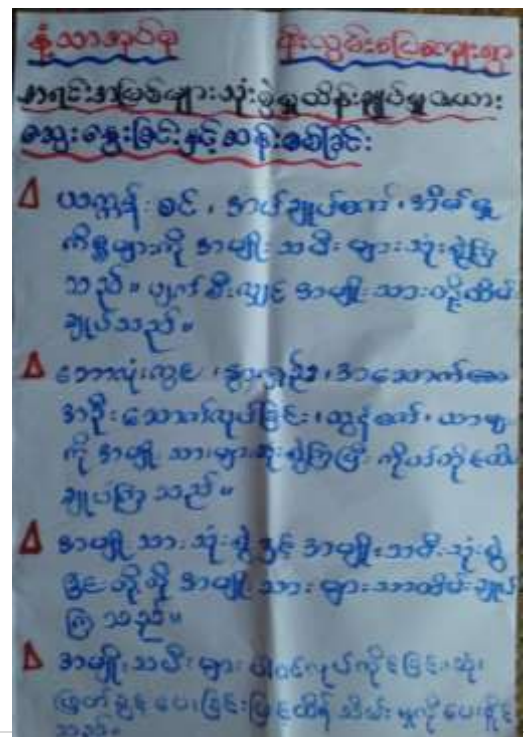 နံ့သာအုပ်စု ရိုးလွမ်းပြေကျေးရွာ
အရင်းအမြစ်များသုံးစွဲမှုထိန်းချုပ်မှုဇယား
ဆွေးနွေးခြင်းနှင့်ဆန်းစစ်ခြင်း
ယက္ကန်းစင်၊ အပ်ချုပ်စက်၊ အိမ်မှု
ကိစ္စများကို အမျိုးသမီးများသုံးစွဲကြ
သည်။ ပျက်စီးလျှင် အမျိုးသား
ချုပ်သည်။
ဘောလုံးကွင်း၊
အဦးဆောက်လုပ်ခြင်း၊ ထွန်စက်၊
ကို အမျိုးသားများသုံးစွဲကြပြီး ကိုယ်တိုင်ထိန်း
ချုပ်ကြသည်။
အမျိုးသားသုံးစွဲ နှင့် အမျိုးသမီးသုံးစွဲ
အမျိုးသားများသာထိန်းချုပ်
ကြသည်။
အမျိုးသမီးများ ပါဝင်လုပ်ကိုင်ခြင်း၊ ဆုံး
ဖြတ်ချင့်ပေးခြင်းဖြင့်
သည်။